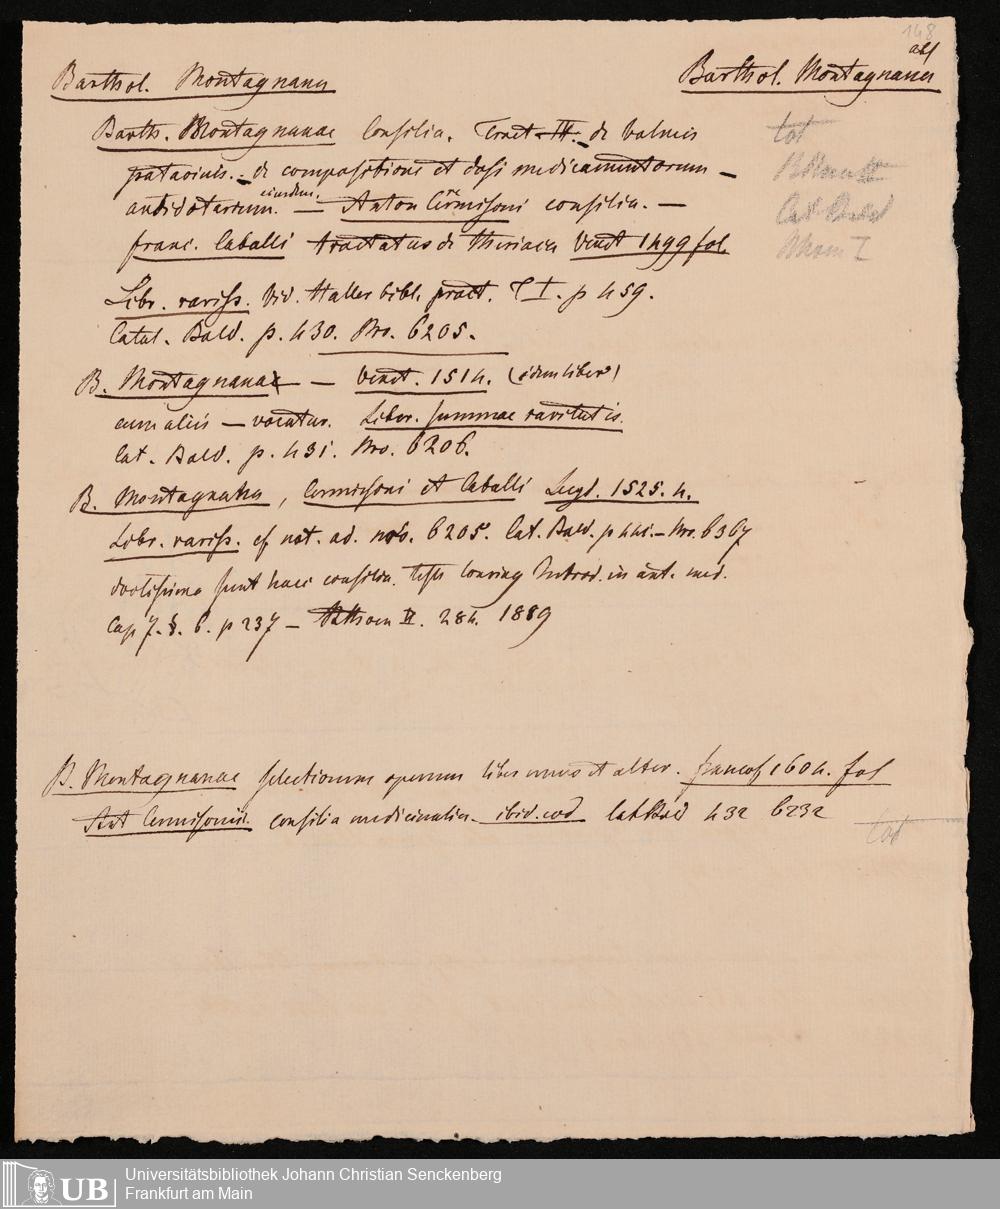 148
abs
Barthol. Montagnana
Barthol. Montagnana
Barth. Montagnanae Consilia. Tract. III. de balneis
patavinis. – de compositione et dosi medicamentorum –
antidotarium. eiusdem. – Anton Cermisoni consilia. –
franc. Caballi tractatus de theriaca Venet 1499 fol
Libr. rariss. Vid. Haller bibl. pract. T I. p 459.
Catal. Bald. p. 430. Nro. 6205.
B. Montagnana – Venet. 1514. (idem liber)
cum aliis – vocatur. Liber. summae raritatis.
Cat. Bald. p. 431. Nro. 6206.
B. Montagnana, Cermisoni et Caballi Lugd. 1525. 4.
Libr. rariss. cf not. ad. nro. 6205. Cat. Bald. p 441. – Nro. 6367
doctissima sunt haec consilia. teste Conring Introd. in art. med.
Cap 7. §. 6. p 237 – II. 284. 1889
tot
Cat Bald
I
B. Montagnanae selectiorum operum liber unus et alter. francof 1604. fol
Ant Cermisonii. consilia medicinalia. ibid. eod Cat Bald 432 6232
tot
UB
Universitätsbibliothek Johann Christian Senckenberg
Frankfurt am Main